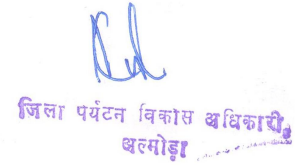 जिला पर्यटन विकास अधिकारी,
अल्मोड़ा